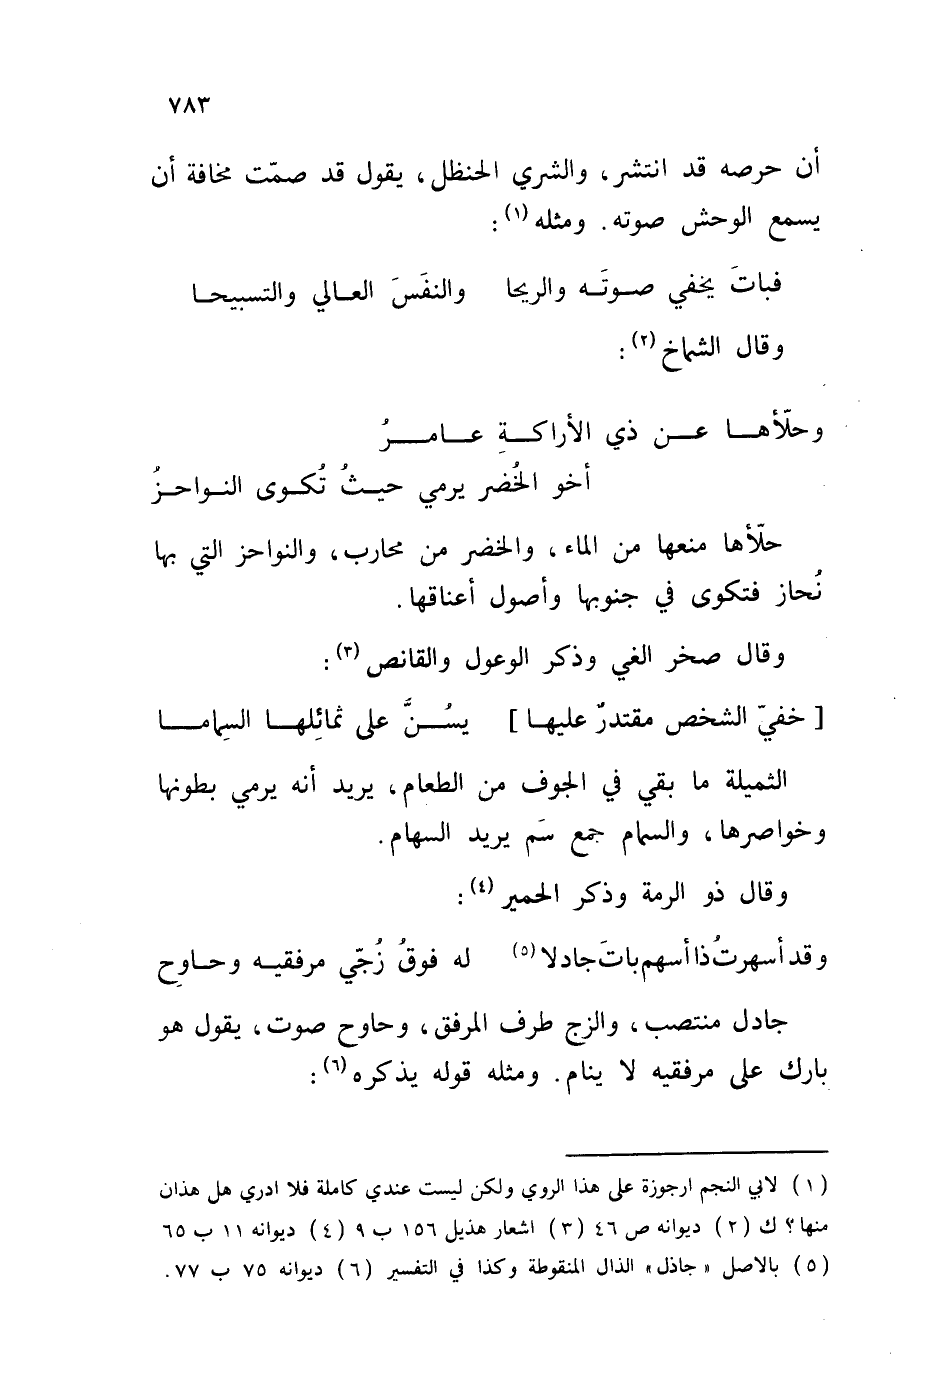 ٧٨٣
أن حرصه قد انتشر، والشري الحنظل، يقول قد صمّت مخافة أن
يسمع الوحش صوته. ومثله (١) :
فباتَ يخفي صوتَه والريحا والنفَسَ العالي والتسبيحا
وقال الشماخ (٢) :
وحلّأها عن ذي الأراكةِ عامرُ
أخو الخُضر يرمي حيثُ تُكوى النواحزُ
حلّأها منعها من الماء، والخضر من محارب، والنواحز التي بها
نُحاز فتكوى في جنوبها وأصول أعناقها.
وقال صخر الغي وذكر الوعول والقانص (٣) :
[ خفيّ الشخص مقتدرٌ عليها ] يسُنَّ على ثمائِلها السِماما
الثميلة ما بقي في الجوف من الطعام، يريد أنه يرمي بطونها
وخواصرها، والسمام جمع سَم يريد السهام.
وقال ذو الرمة وذكر الحمير (٤) :
وقد أسهرتُ ذا أسهم باتَ جادلا (٥) له فوقُ زُجّي مرفقيه وحاوِح
جادل منتصب، والزج طرف المرفق، وحاوح صوت، يقول هو
بارك على مرفقيه لا ينام. ومثله قوله يذكره (٦) :
(١) لابي النجم ارجوزة على هذا الروي ولكن ليست عندي كاملة فلا ادري هل هذان
منها؟ ك (٢) ديوانه ص ٤٦ (٣) اشعار هذيل ١٥٦ ب ٩ (٤) ديوانه ١١ ب ٦٥
(٥) بالاصل « جاذل » الذال المنقوطة وكذا في التفسير (٦) ديوانه ٧٥ ب ٧٧.